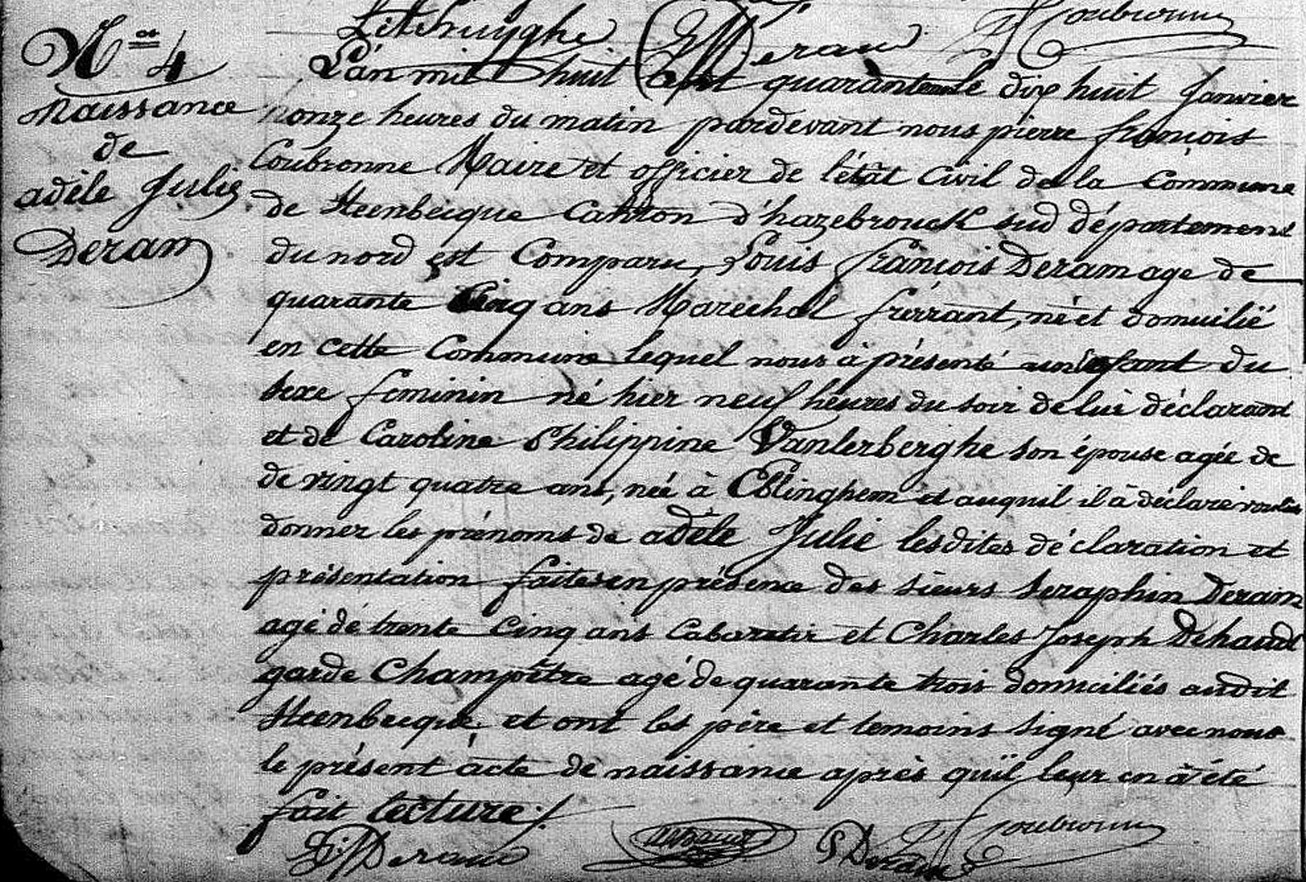 Deram Coubronne
N° 4
Naissance
de
adèle Julie
Deram
L'an mil huit cent quarante le dix huit Janvier
honze heures du matin pardevant nous pierre françois
Coubronne Maire et officier de l'état Civil de la Commune
de Steenbecque Canton d'hazebrouck sud département
du nord est Comparu, Louis françois Deram age de
quarante Cinq ans Maréchal ferrant, né et domicilié
en cette Commune lequel nous à présenté un enfant du
sexe feminin né hier neuf heures du soir de lui déclarant
et de Caroline Philippine Vanlerberghe son épouse agée de
de vingt quatre ans, née à Eblinghem et auquil il à déclaré vouloir
donner les prénoms de adèle Julie lesdites déclaration et
présentation faites en présence des sieurs Seraphin Deram
agé de trente Cinq ans Cabaretir et Charles Joseph Dehaudt
garde Champêtre agé de quarante trois domiciliés audit
Steenbecque, et ont les père et temoins signé avec nous
le présent acte de naissance après qu'il leur en à été
fait lecture /.
Deram Deram Coubronne